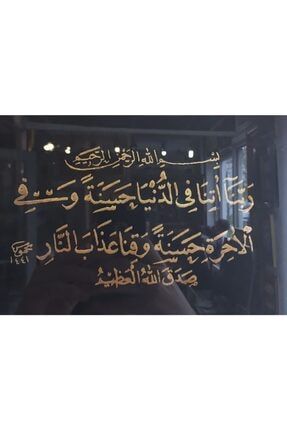 بسم الله الرحمن الرحيم
رَبَّنَا آتِنَا فِي الدُّنْيَا حَسَنَةً وَفِي
الْآخِرَةِ حَسَنَةً وَقِنَا عَذَابَ النَّارِ
صدق الله العظيم
١٤٤١